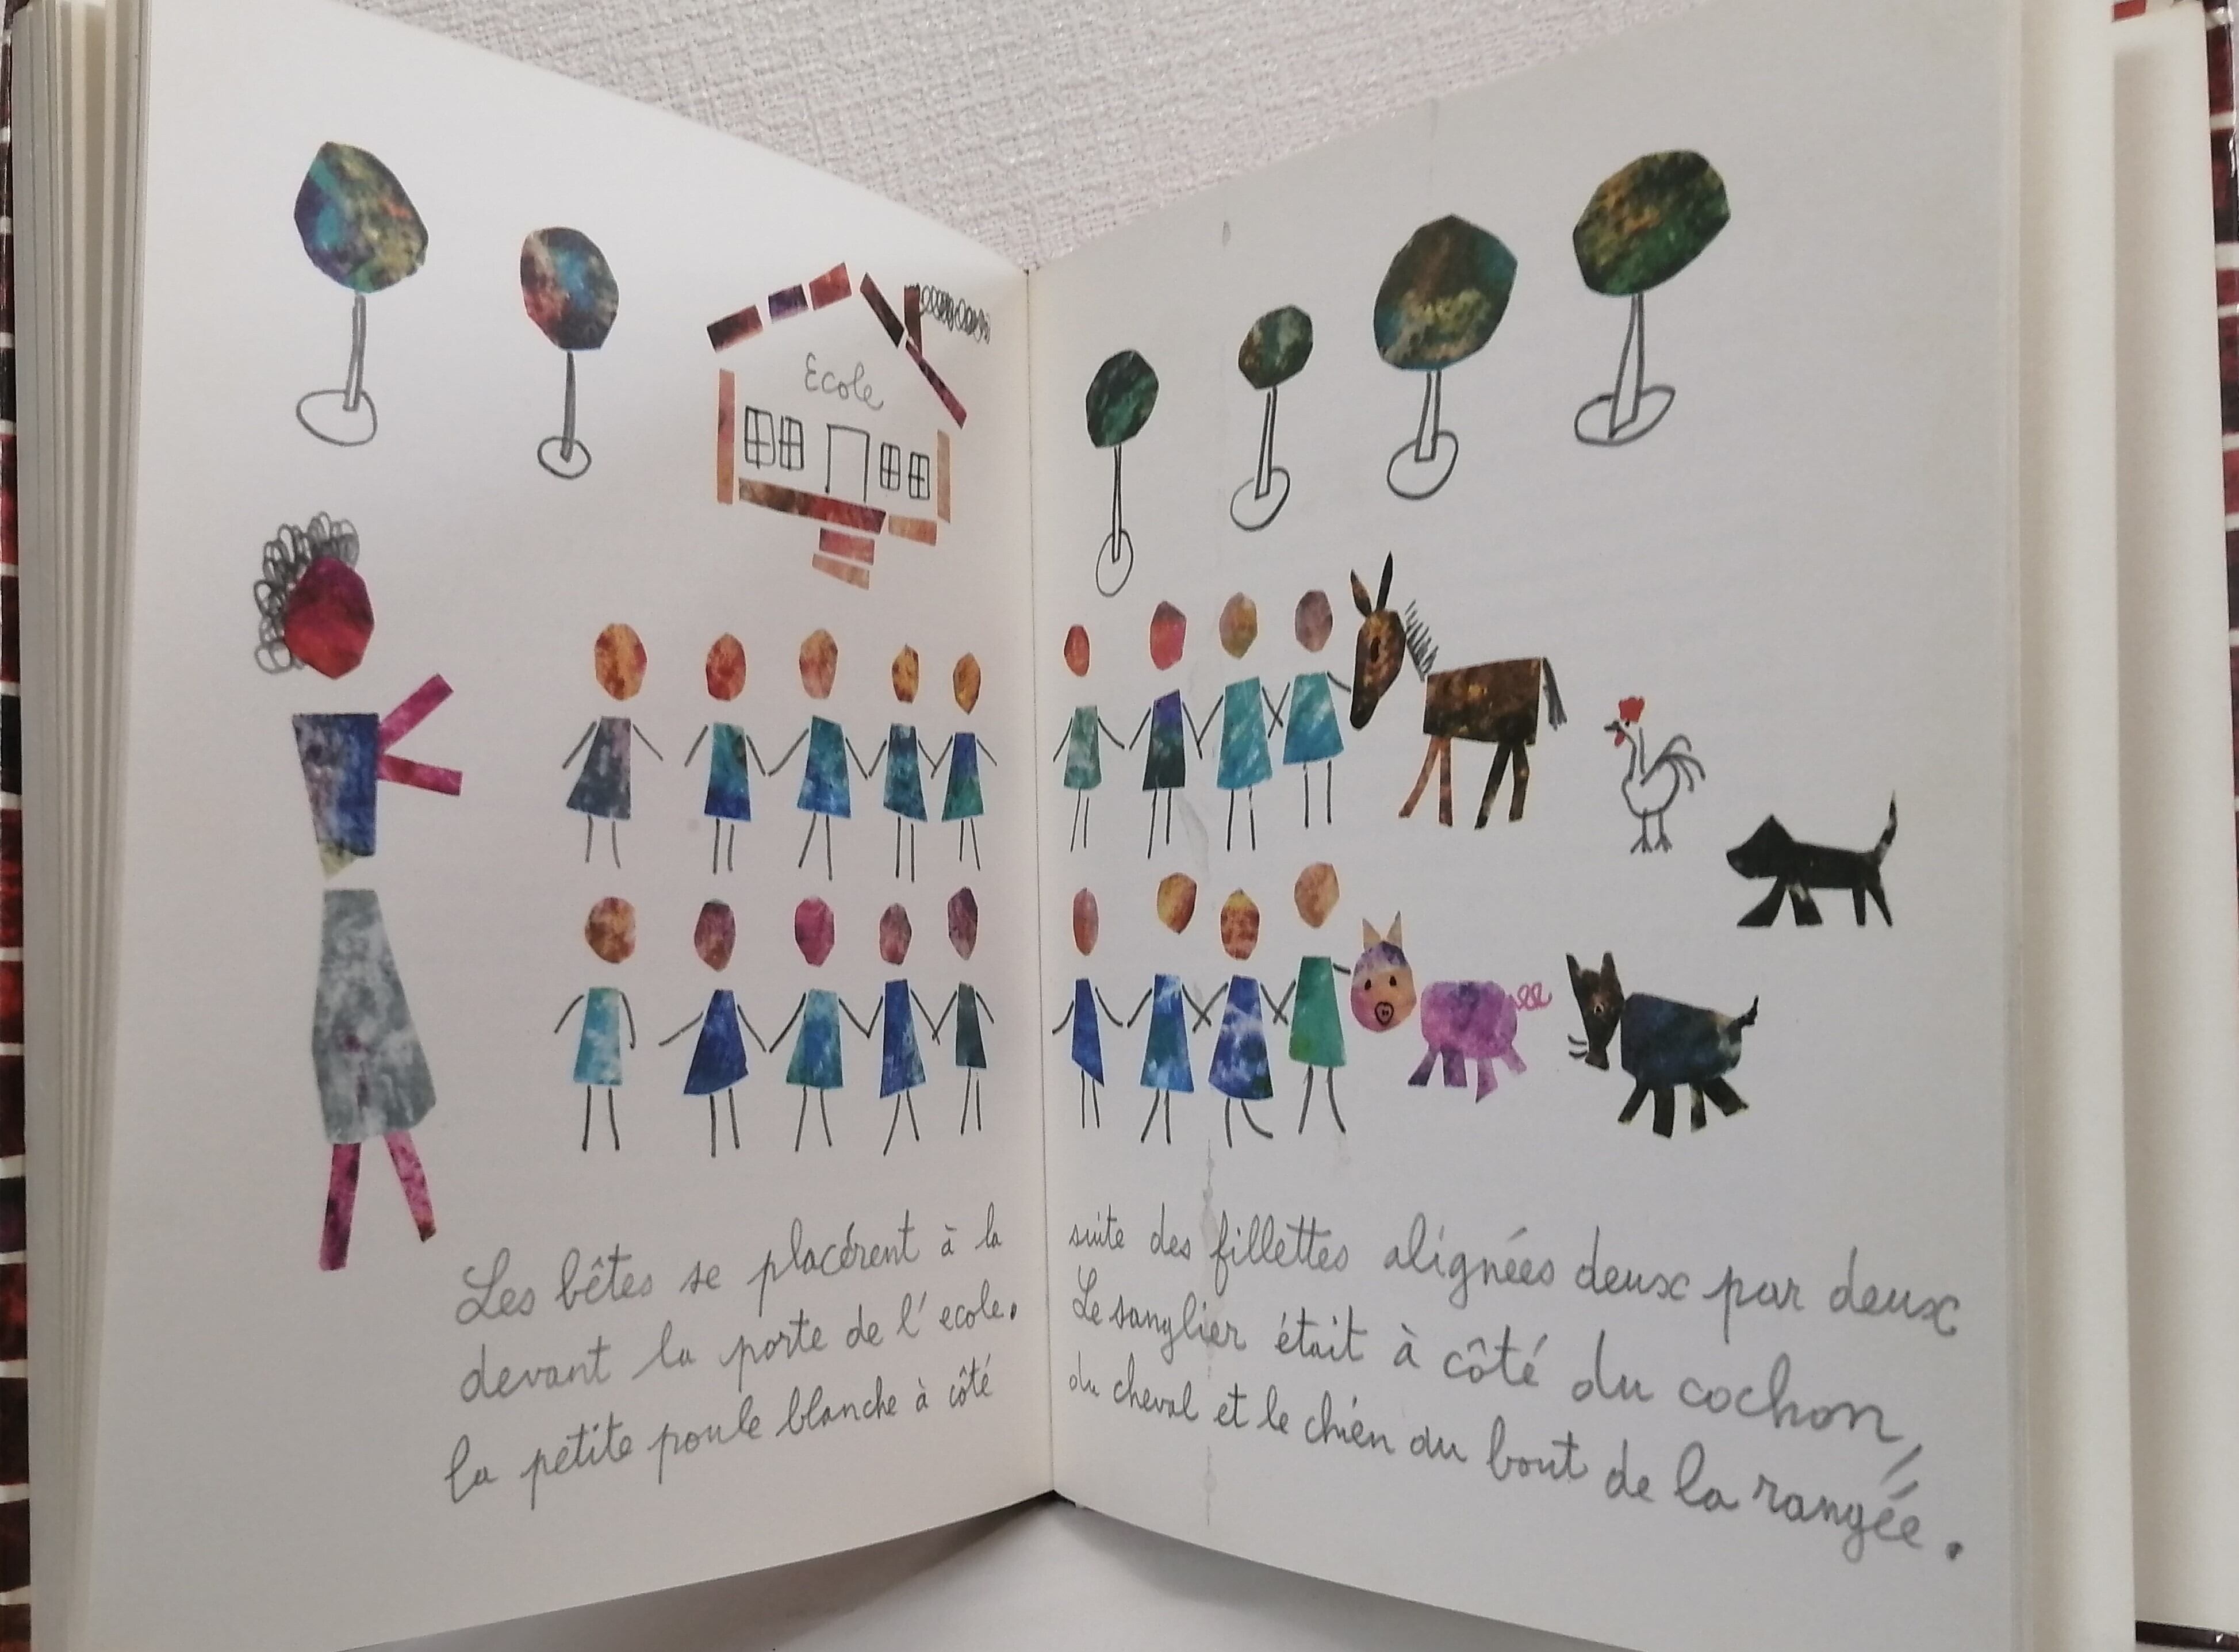 Ecole
Les bêtes se placérent à la suite des fillettes alignées deux par deux
devant la porte de l' ecole. Le sanglier était à côté du cochon,
la petite poule blanche à côté du cheval et le chien au bout de la rangée.